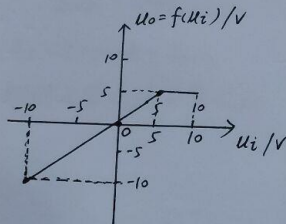 u₀=f(ui)/V
10
5
-10 -5 5 10
0 5 10 ui/V
-5
-10